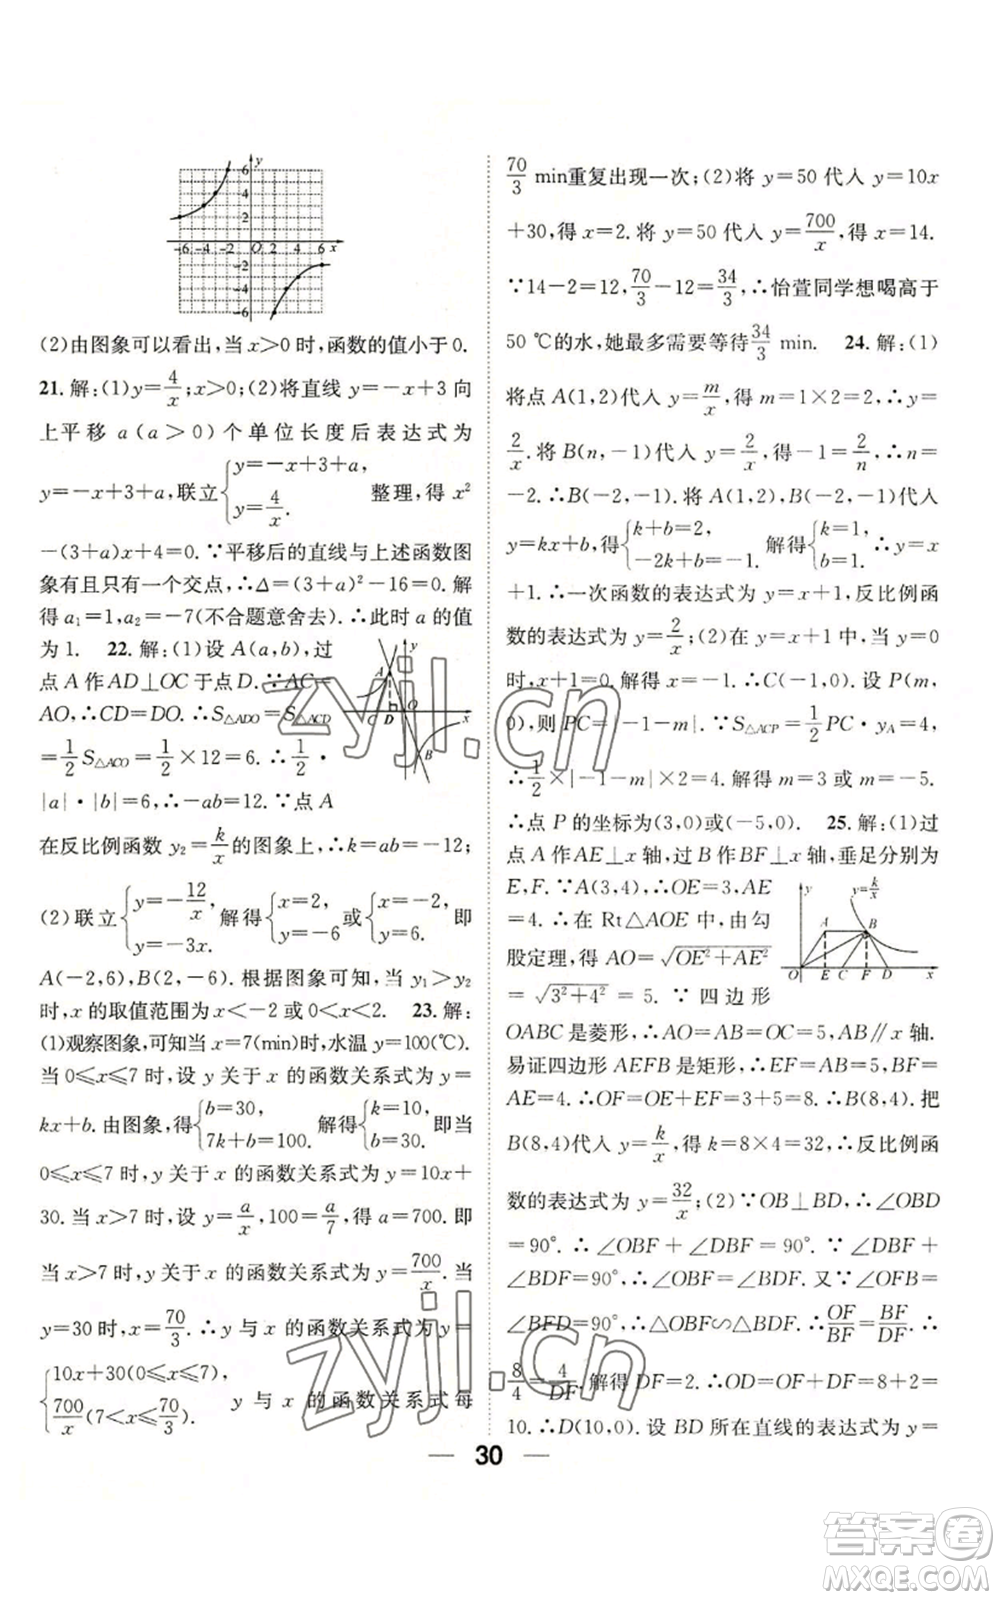 y
6
4
2
-6 -4 -2 O 2 4 6 x
-2
-4
-6
(2)由图象可以看出,当 x>0 时,函数的值小于 0.
21.解:(1)y=4/x;x>0;(2)将直线 y=-x+3 向
上平移 a(a>0)个单位长度后表达式为
y=-x+3+a,联立{y=-x+3+a, y=4/x. 整理,得 x²
-(3+a)x+4=0.∵平移后的直线与上述函数图
象有且只有一个交点,∴Δ=(3+a)²-16=0.解
得 a₁=1,a₂=-7(不合题意舍去).∴此时 a 的值
为 1. 22.解:(1)设 A(a,b),过
点 A 作 AD⊥OC 于点 D.∵AC=
AO,∴CD=DO.∴S△ADO=S△ACD
=1/2 S△ACO=1/2×12=6.∴1/2·
|a|·|b|=6,∴-ab=12.∵点 A
y
A
C D O x
B
在反比例函数 y₂=k/x 的图象上,∴k=ab=-12;
(2)联立{y=-12/x, y=-3x. 解得{x=2, y=-6 或{x=-2, y=6, 即
A(-2,6),B(2,-6).根据图象可知,当 y₁>y₂
时,x 的取值范围为 x<-2 或 0<x<2. 23.解:
(1)观察图象,可知当 x=7(min)时,水温 y=100(℃).
当 0≤x≤7 时,设 y 关于 x 的函数关系式为 y=
kx+b.由图象,得{b=30, 7k+b=100. 解得{k=10, b=30. 即当
0≤x≤7 时,y 关于 x 的函数关系式为 y=10x+
30.当 x>7 时,设 y=a/x,100=a/7,得 a=700.即
当 x>7 时,y 关于 x 的函数关系式为 y=700/x.当
y=30 时,x=70/3.∴y 与 x 的函数关系式为 y=
{10x+30(0≤x≤7), 700/x(7<x≤70/3). y 与 x 的函数关系式每
70/3 min重复出现一次;(2)将 y=50 代入 y=10x
+30,得 x=2.将 y=50 代入 y=700/x,得 x=14.
∵14-2=12,70/3-12=34/3,∴怡萱同学想喝高于
50 ℃的水,她最多需要等待34/3 min. 24.解:(1)
将点 A(1,2)代入 y=m/x,得 m=1×2=2,∴y=
2/x.将 B(n,-1)代入 y=2/x,得-1=2/n,∴n=
-2.∴B(-2,-1).将 A(1,2),B(-2,-1)代入
y=kx+b,得{k+b=2, -2k+b=-1. 解得{k=1, b=1. ∴y=x
+1.∴一次函数的表达式为 y=x+1,反比例函
数的表达式为 y=2/x;(2)在 y=x+1 中,当 y=0
时,x+1=0,解得 x=-1.∴C(-1,0).设 P(m,
0),则 PC=|-1-m|.∵S△ACP=1/2 PC·yA=4,
∴1/2×|-1-m|×2=4.解得 m=3 或 m=-5.
∴点 P 的坐标为(3,0)或(-5,0). 25.解:(1)过
点 A 作AE⊥x 轴,过 B 作 BF⊥x 轴,垂足分别为
E,F.∵A(3,4),∴OE=3,AE
=4.∴在 Rt△AOE 中,由勾
股定理,得 AO=√OE²+AE²
=√3²+4²=5.∵四边形
y y=k/x
A B
O E C F D x
OABC 是菱形,∴AO=AB=OC=5,AB∥x 轴.
易证四边形 AEFB 是矩形,∴EF=AB=5,BF=
AE=4.∴OF=OE+EF=3+5=8.∴B(8,4).把
B(8,4)代入 y=k/x,得 k=8×4=32,∴反比例函
数的表达式为 y=32/x;(2)∵OB⊥BD,∴∠OBD
=90°.∴∠OBF+∠DBF=90°.∵∠DBF+
∠BDF=90°,∴∠OBF=∠BDF.又∵∠OFB=
∠BFD=90°,∴△OBF∽△BDF.∴OF/BF=BF/DF.∴
8/4=4/DF.解得 DF=2.∴OD=OF+DF=8+2=
10.∴D(10,0).设 BD 所在直线的表达式为 y=
30
zyjl.cn
zyjl.cn
答案卷
MXQE.COM